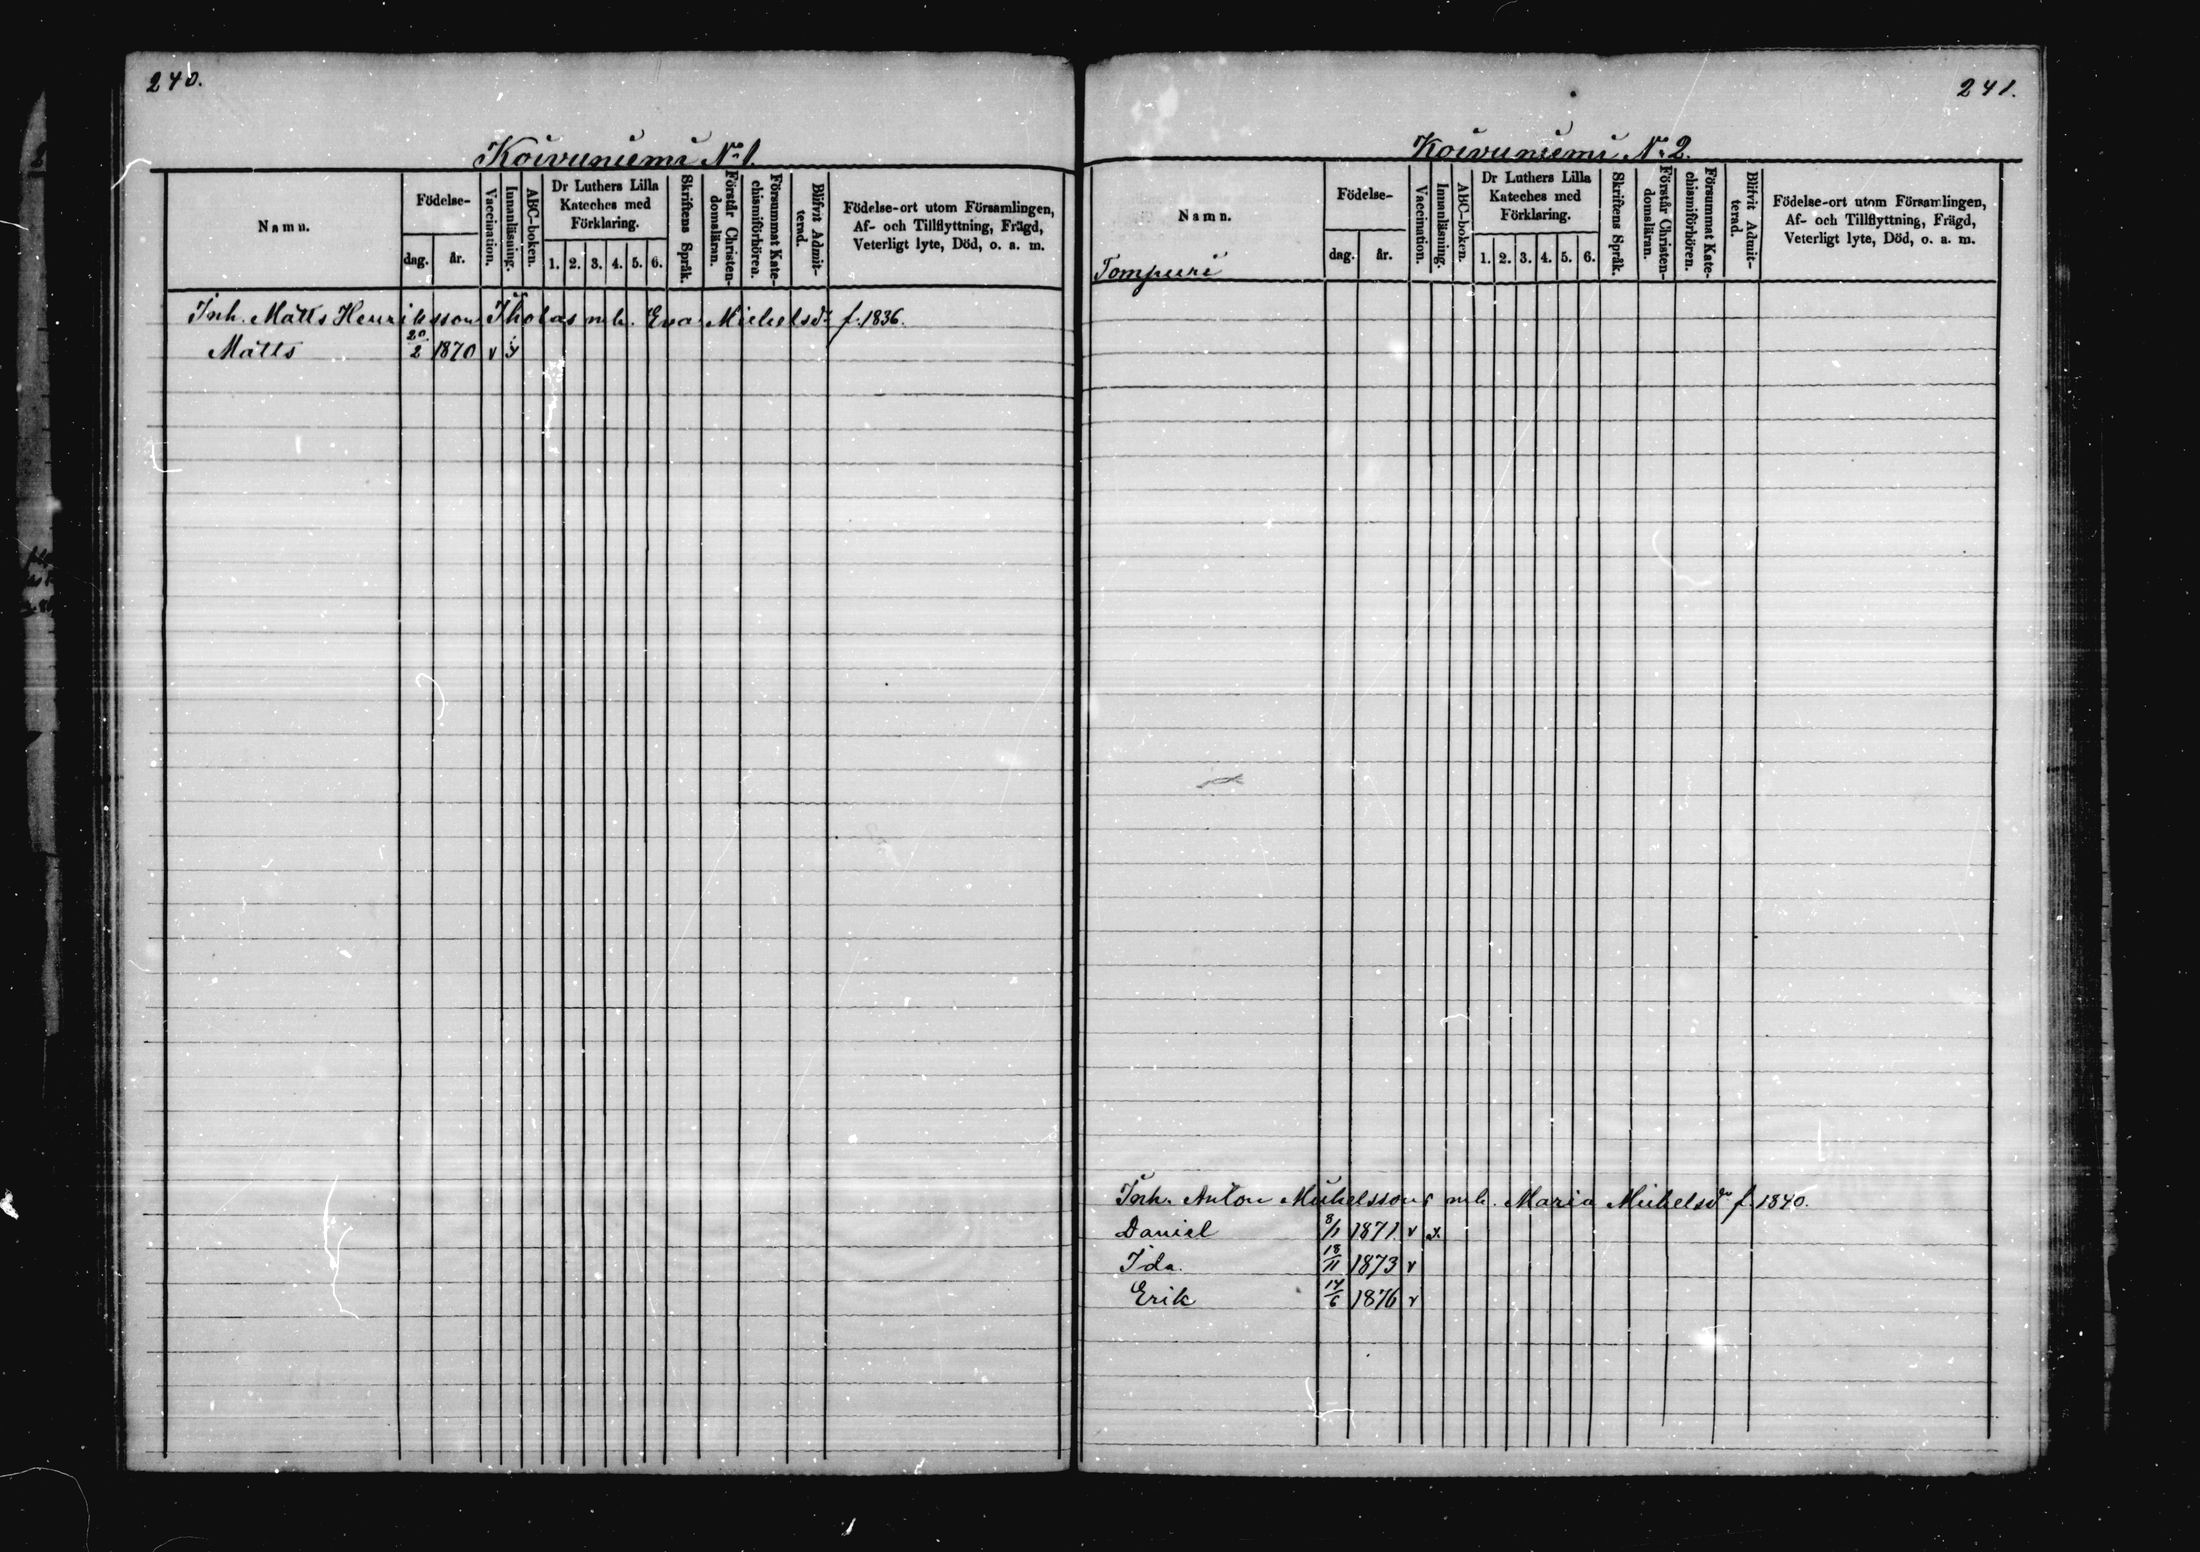 240.
Koivuniemi N:o 1.
Namn.
Födelse-
dag.
år.
Vaccination.
Innanläsning.
ABC-boken.
Dr Luthers Lilla
Kateches med
Förklaring.
1. 2. 3. 4. 5. 6.
Skriftens Språk.
Förstår Christen-
domsläran.
Försummat Kate-
chismiförhören.
Blifvit Admit-
terad.
Födelse-ort utom Församlingen,
Af- och Tillflyttning, Frägd,
Veterligt lyte, Död, o. a. m.
Inh. Matts Henriksson mh. Eva Michelsdr f. 1836.
Matts 20/2 1870 v
241.
Koivuniemi N:o 2.
Namn.
Födelse-
dag.
år.
Vaccination.
Innanläsning.
ABC-boken.
Dr Luthers Lilla
Kateches med
Förklaring.
1. 2. 3. 4. 5. 6.
Skriftens Språk.
Förstår Christen-
domsläran.
Försummat Kate-
chismiförhören.
Blifvit Admit-
terad.
Födelse-ort utom Församlingen,
Af- och Tillflyttning, Frägd,
Veterligt lyte, Död, o. a. m.
Tompuri
Inh. Anton Michelssons mh. Maria Michelsdr f. 1840.
Daniel 8/1 1871 v x
Ida. 18/11 1873 v
Erik 14/6 1876 v